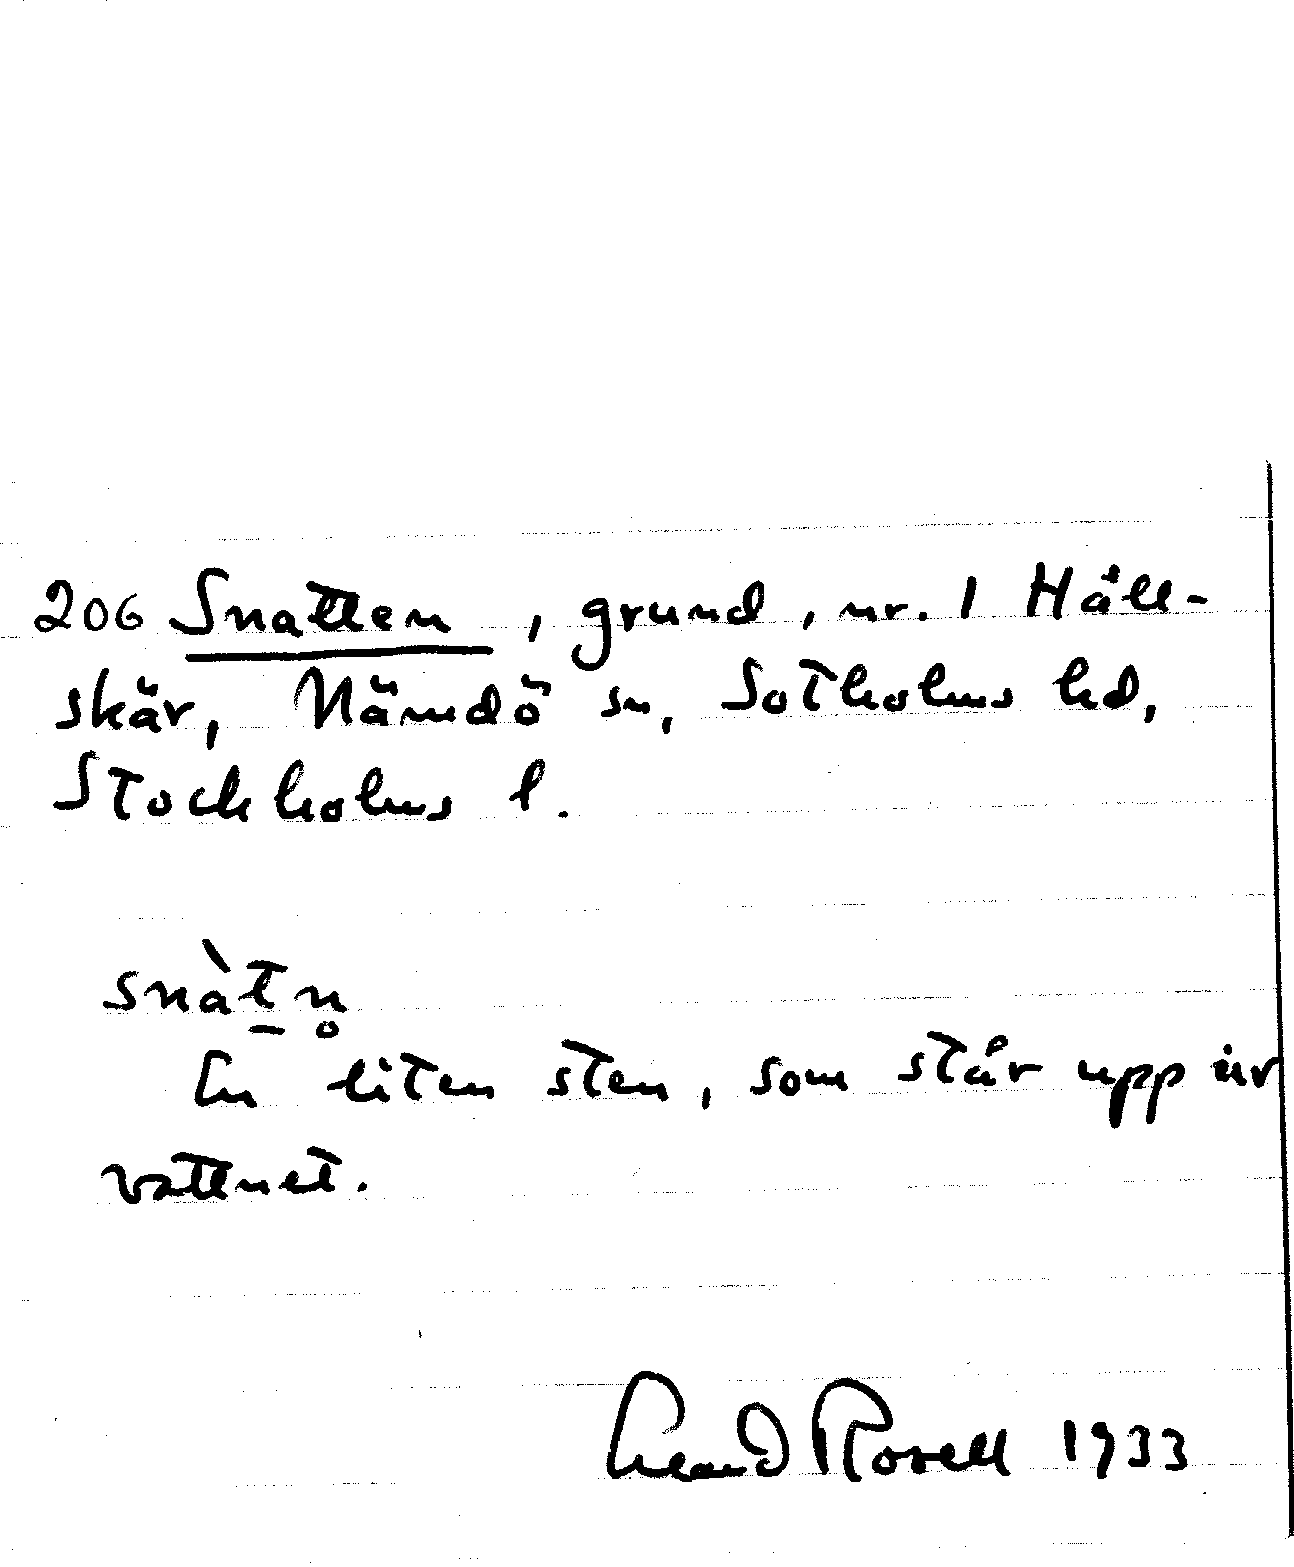 206 Snatten, grund, nr. 1 Håll-
skär, Nämdö sn, Sotholms hd,
Stockholms l.
snàt̠n̥
En liten sten, som står upp ur
vattnet.
Erland Rosell 1933